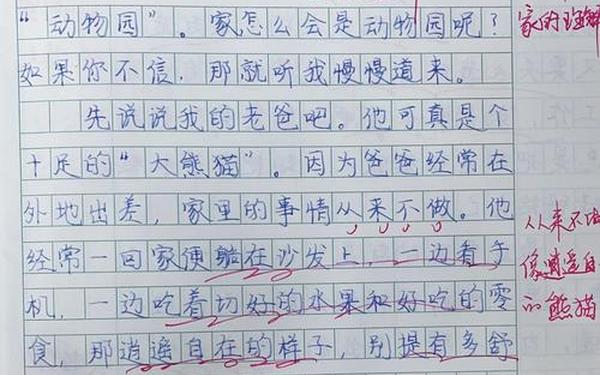 “动物园”。家怎么会是动物园呢？
如果你不信，那就听我慢慢道来。
先说说我的老爸吧。他可真是个
十足的“大熊猫”。因为爸爸经常在
外地出差，家里的事情从来不做。他
经常一回家便躺在沙发上，一边看手
机，一边吃着切好的水果和好吃的零
食，那逍遥自在的样子，别提有多舒
家的理解
从来不做
像逍遥自
的熊猫